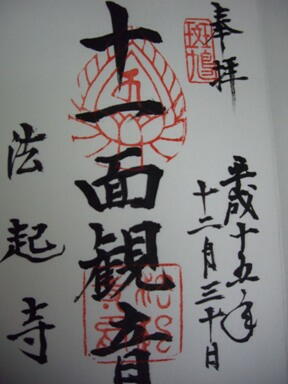 奉拝
斑鳩
平成十五年
十二月三十日
十一面観音
法起寺